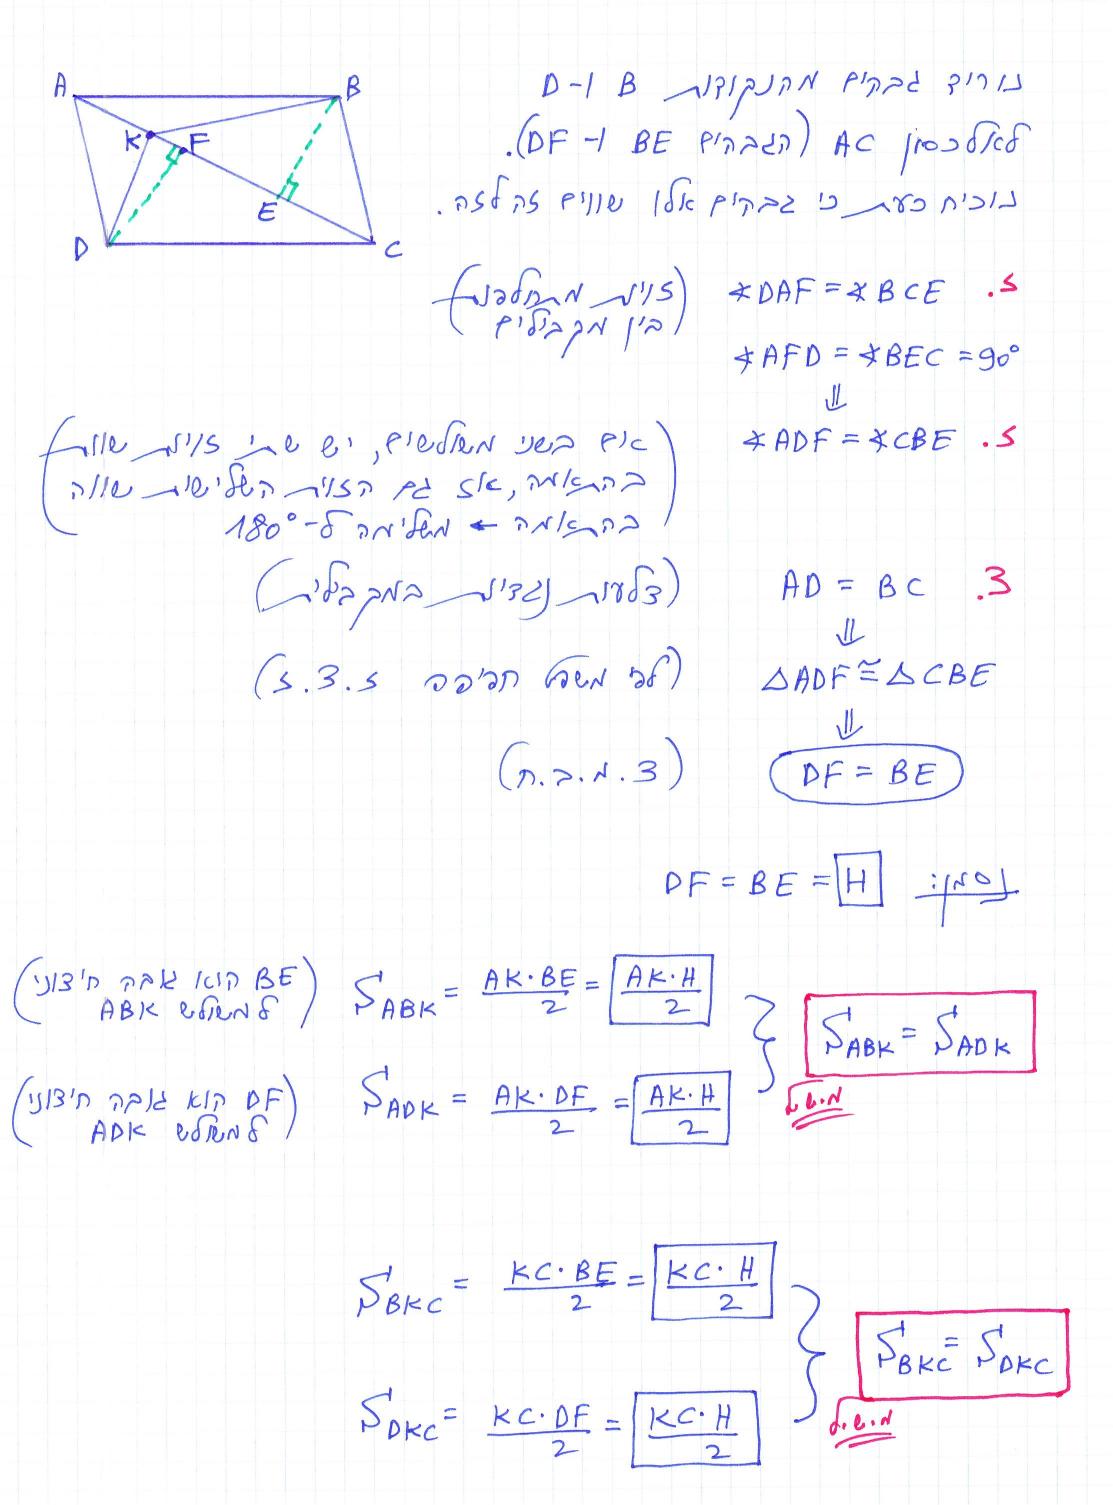 A B K F E D C
נוריד גבהים מהנקודות B ו-D
לאלכסון AC (הגבהים BE ו-DF).
נוכיח כעת כי גבהים אלו שווים זה לזה.
ז. ∢DAF = ∢BCE (זוית מתחלפות
בין מקבילים)
∢AFD = ∢BEC = 90°
⇓
ז. ∢ADF = ∢CBE (אם בשני משולשים, יש שתי זוית שוות
בהתאמה, אז גם הזוית השלישית שווה
בהתאמה ← משלימה ל-180°)
צ. AD = BC (צלעות נגדיות במקבילית)
⇓
△ADF ≅ △CBE (לפי משפט חפיפה ז.צ.ז)
⇓
DF = BE (צ.מ.ב.ח)
נסמן: DF = BE = H
S_ABK = AK·BE/2 = AK·H/2 (BE הוא גובה חיצוני
למשולש ABK)
S_ABK = S_ADK
מ.ש.ל
S_ADK = AK·DF/2 = AK·H/2 (DF הוא גובה חיצוני
למשולש ADK)
S_BKC = KC·BE/2 = KC·H/2
S_BKC = S_DKC
מ.ש.ל
S_DKC = KC·DF/2 = KC·H/2